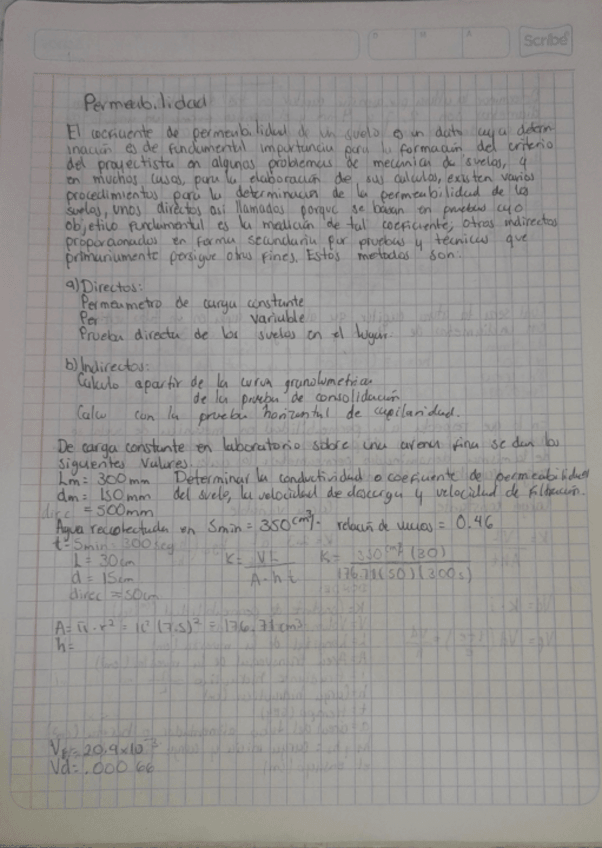 Scribe
D M A
Permeabilidad
El coeficiente de permeabilidad de un suelo es un dato cuya determ-
inación es de fundamental importancia para la formación del criterio
del proyectista en algunos problemas de mecanica de suelos, y
en muchos casos, para la elaboración de sus calculos, existen varios
procedimientos para la determinación de la permeabilidad de los
suelos, unos directos asi llamados porque se basan en pruebas cuyo
objetivo fundamental es la medición de tal coeficiente, otros indirectos
proporcionados en forma secundaria por pruebas y técnicas que
primariamente persigue otros fines. Estos metodos son:
a) Directos:
Permeametro de carga constante
Per variable
Prueba directa de los suelos en el lugar.
b) Indirectos:
Calculo apartir de la curva granulometrica
de la prueba de consolidación
Calcu con la prueba horizontal de capilaridad.
De carga constante en laboratorio sobre una arena fina se dan los
siguientes valures.
Lm= 300mm Determinar la conductividad o coeficiente de permeabilidad
dm= 150mm del suelo, la velocidad de descarga y velocidad de filtración.
= 500mm
Agua recolectada en 5min = 350 cm³. relación de vacios = 0.46
t= 5min 300seg
L= 30cm K= VL / A·h t K= 350cm³ (30) / 176.71(50)(300s)
d= 15cm
direc = 50cm
A= π·r² = π (7.5)² = 176.71cm²
h=
= 20.9x10⁻³
Vd= .00066